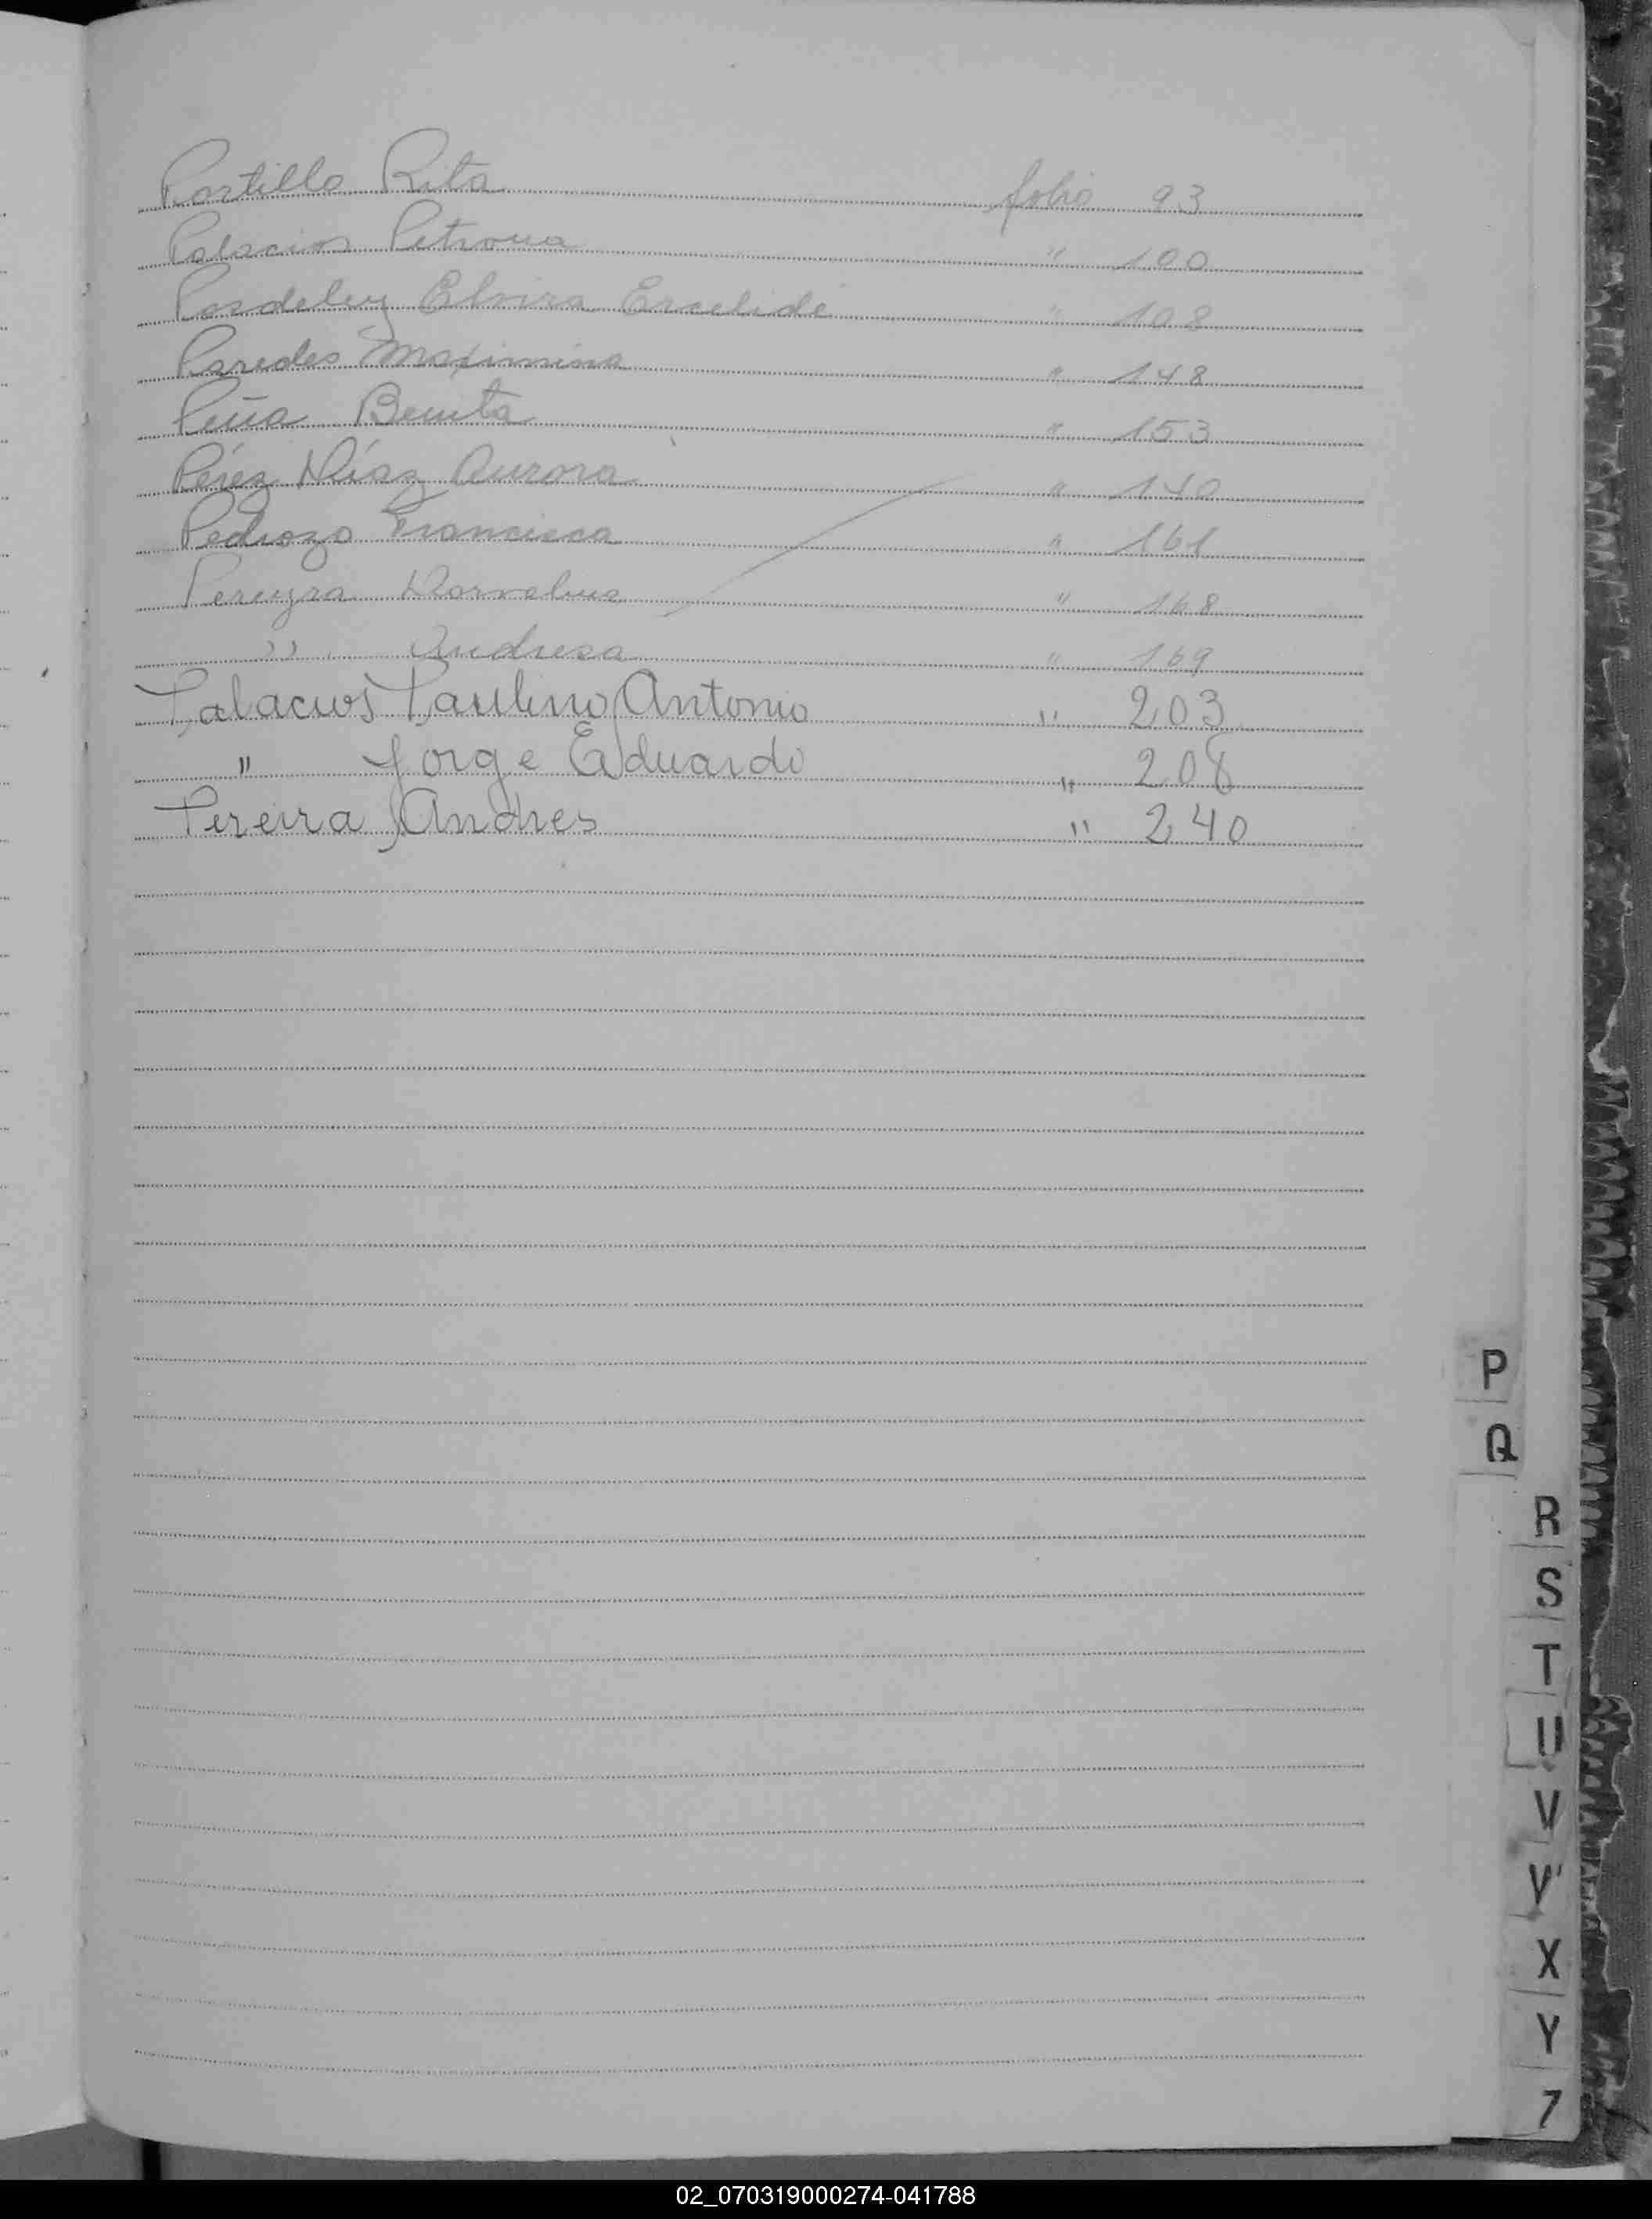 Portillo Rita folio 93
Palacios Petrona " 100
Elvira " 108
Paredes Maximina " 148
Peña Benita " 153
Pérez Díaz Aurora " 140
Pedrozo Francisca " 161
Pereyra " 168
" Andresa " 169
Palacios Paulino Antonio " 203
" Jorge Eduardo " 208
Pereira Andres " 240
P
Q
R
S
T
U
V
W
X
Y
Z
02_070319000274-041788